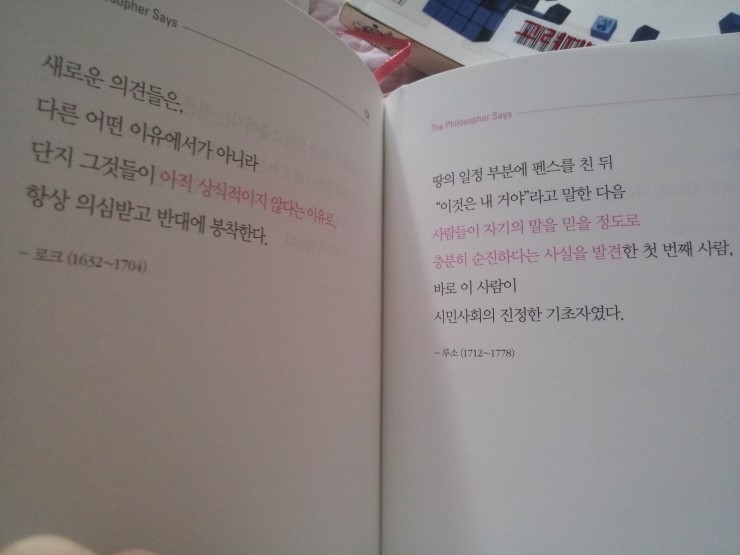 Philosopher Says
새로운 의견들은,
다른 어떤 이유에서가 아니라
단지 그것들이 아직 상식적이지 않다는 이유로,
항상 의심받고 반대에 봉착한다.
– 로크 (1632~1704)
The Philosopher Says
땅의 일정 부분에 펜스를 친 뒤
“이것은 내 거야”라고 말한 다음
사람들이 자기의 말을 믿을 정도로
충분히 순진하다는 사실을 발견한 첫 번째 사람,
바로 이 사람이
시민사회의 진정한 기초자였다.
– 루소 (1712~1778)